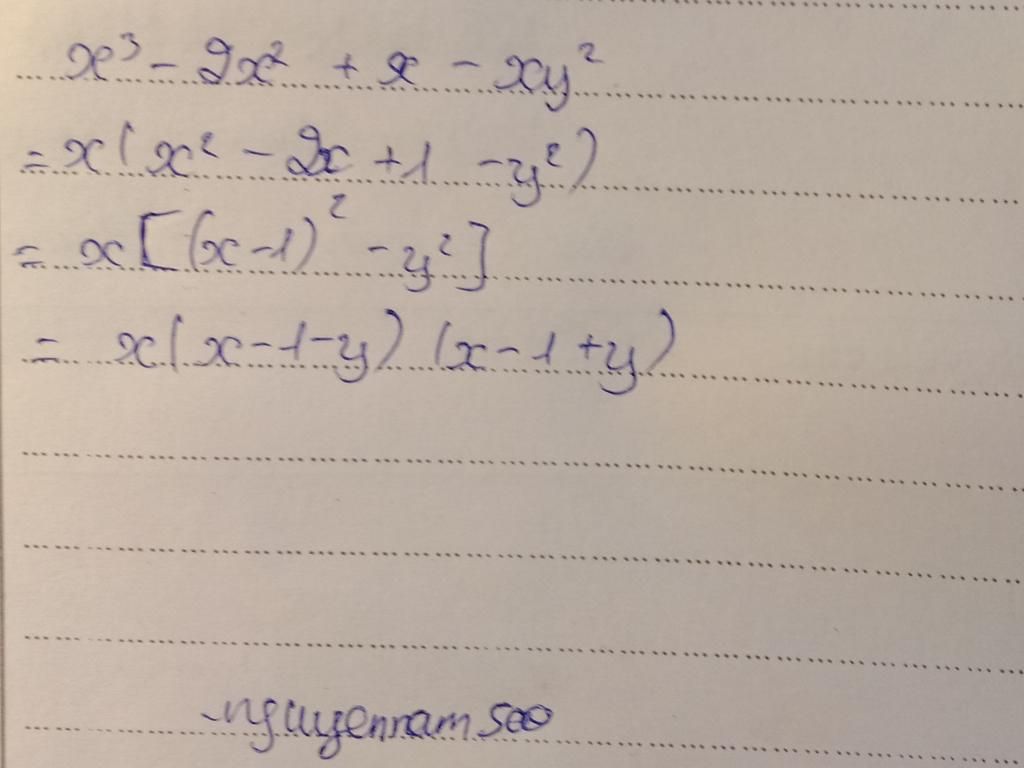 x³ - 2x² + x - xy²
= x(x² - 2x + 1 - y²)
= x[(x-1)² - y²]
= x(x-1-y)(x-1+y)
nguyennam seo